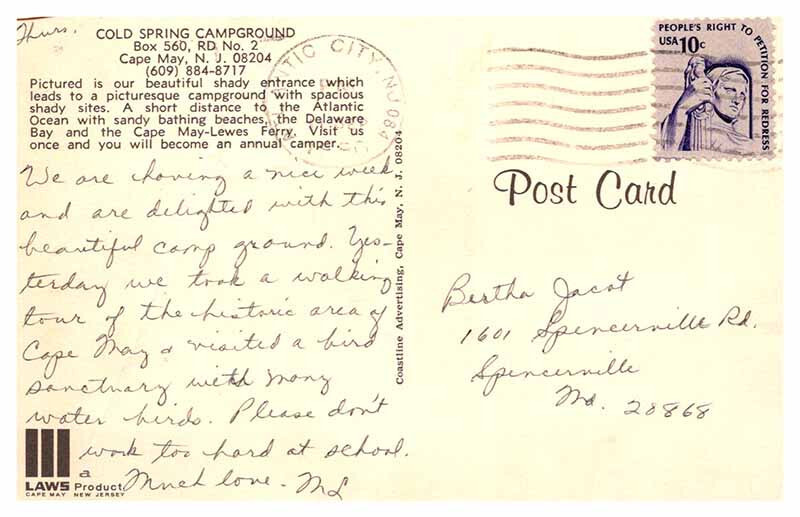 Thurs.
COLD SPRING CAMPGROUND
Box 560, RD No. 2
Cape May, N. J. 08204
(609) 884-8717
Pictured is our beautiful shady entrance which
leads to a picturesque campground with spacious
shady sites. A short distance to the Atlantic
Ocean with sandy bathing beaches, the Delaware
Bay and the Cape May-Lewes Ferry. Visit us
once and you will become an annual camper.
We are having a nice week
and are delighted with this
beautiful camp ground. Yes-
terday we took a walking
tour of the historic area of
Cape May & visited a bird
sanctuary with many
water birds. Please don't
work too hard at school.
Much love - ML
a
LAWS Product
CAPE MAY NEW JERSEY
Coastline Advertising, Cape May, N. J. 08204
ANTIC CITY, NJ 084
PEOPLE'S RIGHT TO PETITION FOR REDRESS
USA 10c
Post Card
Bertha Jacot
1601 Spencerville Rd.
Spencerville
Md. 20868